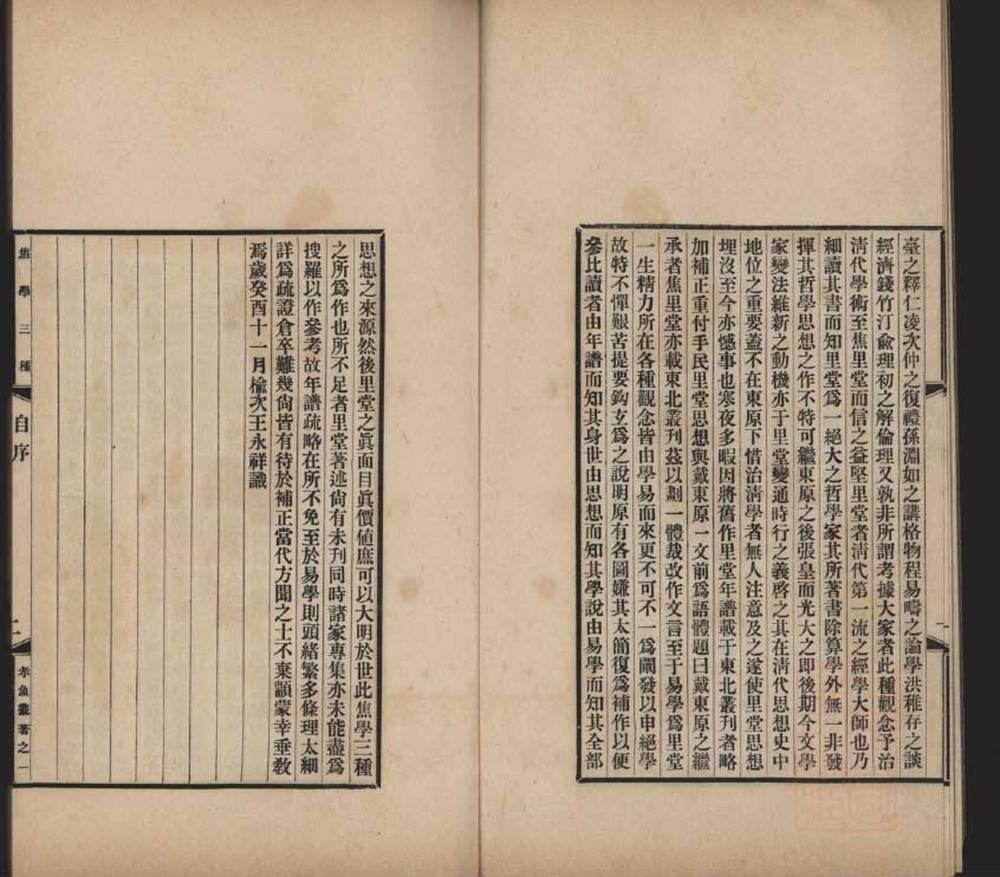 臺之釋仁凌次仲之復禮孫淵如之講格物程易疇之論學洪稚存之談
經濟錢竹汀俞理初之解倫理又孰非所謂考據大家者此種觀念予治
清代學術至焦里堂而信之益堅里堂者清代第一流之經學大師也乃
細讀其書而知里堂爲一絕大之哲學家其所著書除算學外無一非發
揮其哲學思想之作不特可繼東原之後張皇而光大之即後期今文學
家變法維新之動機亦于里堂變通時行之義啓之其在清代思想史中
地位之重要蓋不在東原下惜治清學者無人注意及之遂使里堂思想
埋沒至今亦憾事也寒夜多暇因將舊作里堂年譜載于東北叢刊者略
加補正重付手民里堂思想與戴東原一文前爲語體題曰戴東原之繼
承者焦里堂亦載東北叢刊茲以劃一體裁改作文言至于易學爲里堂
一生精力所在各種觀念皆由學易而來更不可不一爲闡發以申絕學
故特不憚艱苦提要鈎玄爲之說明原有各圖嫌其太簡復爲補作以便
參比讀者由年譜而知其身世由思想而知其學說由易學而知其全部
思想之來源然後里堂之眞面目眞價値庶可以大明於世此焦學三種
之所爲作也所不足者里堂著述尙有未刊同時諸家專集亦未能盡爲
搜羅以作參考故年譜疏略在所不免至於易學則頭緒繁多條理太細
詳爲疏證倉卒難幾尙皆有待於補正當代方聞之士不棄顓蒙幸垂敎
焉歲癸酉十一月楡次王永祥識
焦學三種
自序
二
孝魚叢著之一